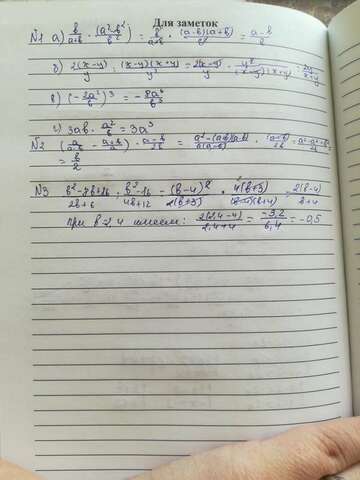 Для заметок
№1 а) b/(a+b) · (a²-b²/b²) = b/(a+b) · (a-b)(a+b)/b² = (a-b)/b
б) 2(x-y)/y : (x-y)(x+y)/y² = 2(x-y)/y · y²/(x-y)(x+y) = 2y/(x+y)
в) (-2a²/b)³ = -8a⁶/b³
г) 3ab · a²/b = 3a³
№2 (a/
= b/2
№3 b²-8b+16/2b+6 : b²-16/4b+12 = (b-4)²/2(b+3) · 4(b+3)/(b-4)(b+4) = 2(b-4)/b+4
при b=2,4 имеем: 2(2,4-4)/2,4+4 = -3,2/6,4 = -0,5